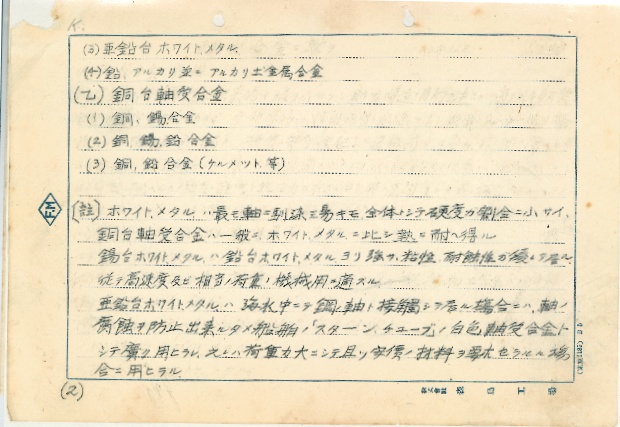 (3) 亜鉛台ホワイト、メタル、
(4) 鉛、アルカリ並ニアルカリ土金属合金
(乙) 銅台軸受合金
(1) 銅、錫合金
(2) 銅、錫、鉛合金
(3) 銅、鉛合金 (ケルメット等)
(註) ホワイト、メタルハ最モ軸ニ馴染ミ易キモ全体トシテ硬度ガ割合ニ小サイ、
銅台軸受合金ハ一般ニ、ホワイト、メタルニ比シ熱ニ耐ヘ得ル
錫台ホワイト、メタルハ鉛台ホワイト、メタルヨリ強サ、粘性、耐蝕性ガ優レテ居ル
従テ高速度及ビ相当ノ荷重ノ機械用ニ適スル
亜鉛台ホワイトメタルハ海水中ニテ鋼ノ軸ト接觸シテ居ル場合ニハ、軸ノ
腐蝕ヲ防止出来ルタメ船舶ノスターン、チューブノ白色軸受合金ト
シテ廣ク用ヒラレ、又ハ荷重力大ニシテ且ツ安價ノ材料ヲ要求セラルル場
合ニ用ヒラル
(2)
FM
株式會社